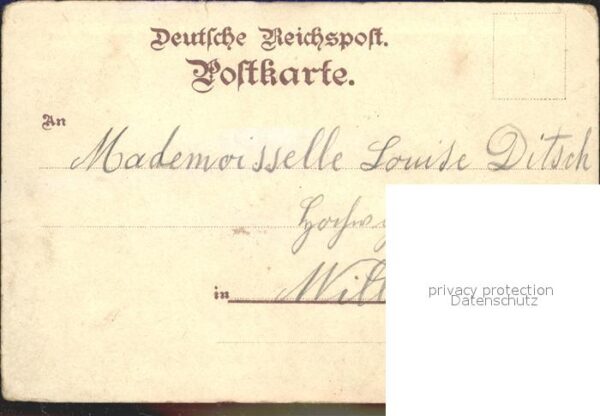 Deutsche Reichspost.
Postkarte.
An
Mademoisselle Louise Ditsch
in
privacy protection
Datenschutz